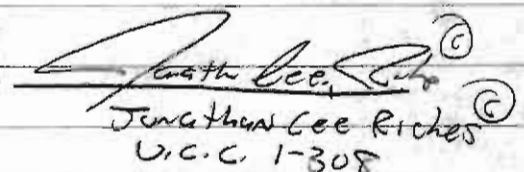 Jonathan Lee Riches ©
Jonathan Lee Riches ©
U.C.C. 1-308